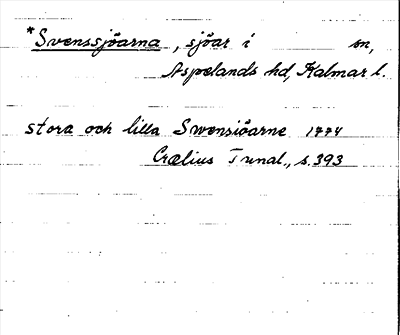 *Svenssjöarna, sjöar i sn,
Aspelands hd, Kalmar l.
stora och lilla Swensiöarne 1774
Crælius Tunal., s. 393